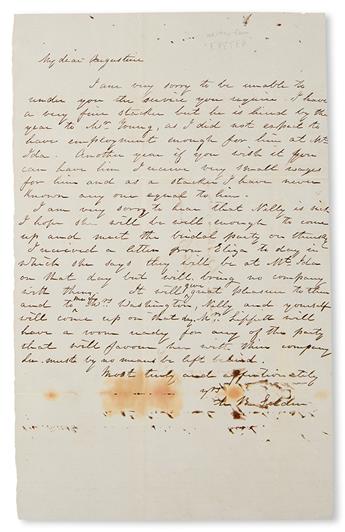 My dear Augustine
I am very sorry to be unable to
render you the service you require. I have
a very fine stacker but he is hired by the
year to Thos. Young, as I did not expect to
have employment enough for him at Mt
Ida. Another year if you wish it you
can have him I receive very small wages
for him and as a stacker I have never
known any one equal to him.
I am very sorry to hear that Nelly is sick
I hope she will be well enough to come
up and meet the bridal party on thursday
I received a letter from Eliza to day in
which she says they will be at Mt Ida
on that day but will bring no company
with them. It will give great pleasure to them
and to me Mrs. Washington, Nelly and yourself
will come up on that day Mr. Lippitt will
have a room ready for any of the party
that will favour him with their company
he must by no means be left behind.
Most truly and affectionately
yrs